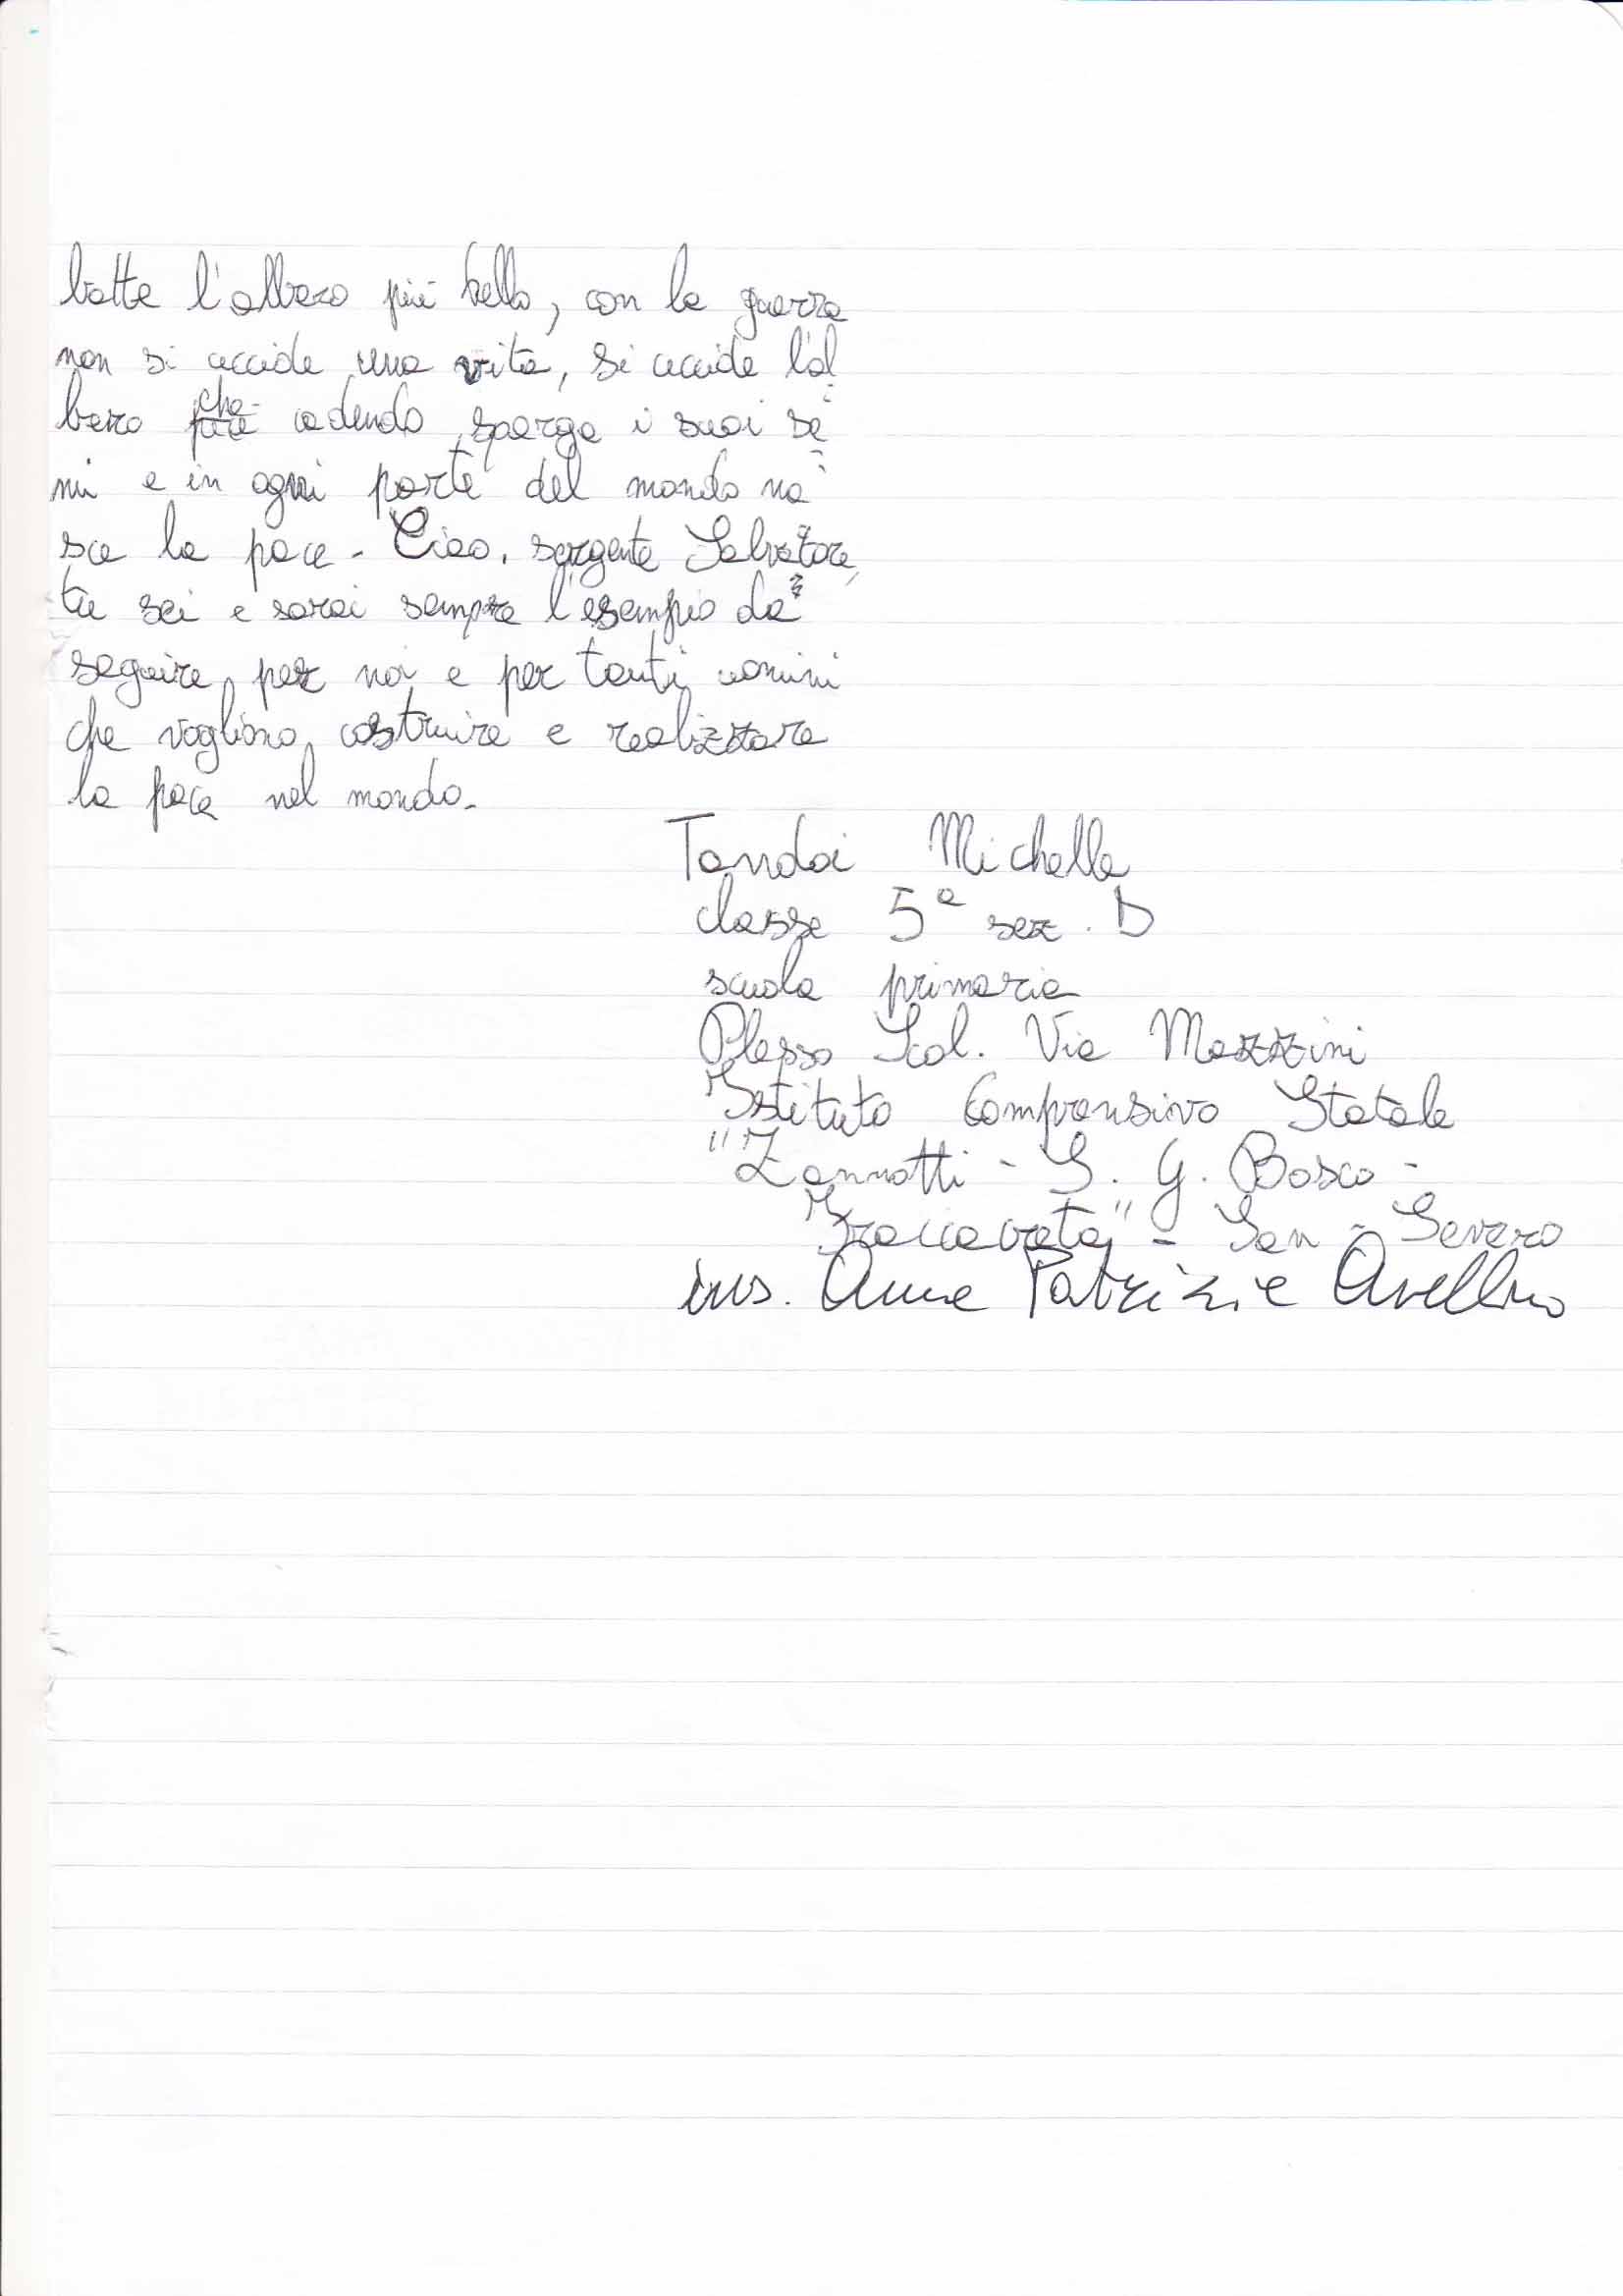 batte l'albero più bello, con la guerra
non si uccide una vita, si uccide l'al
bero che cadendo sparge i suoi se
mi e in ogni parte del mondo na
sce la pace - Ciao, sergente Salvatore,
tu sei e sarai sempre l'esempio da
seguire per noi e per tanti uomini
che vogliono costruire e realizzare
la pace nel mondo.
Tandoi Michelle
classe 5ª sez. D
scuola primaria
Plesso Scol. Via Mazzini
Istituto Comprensivo Statale
"Zannotti - S. G. Bosco -
Fraccacreta" - San - Severo
ins. Anna Patrizia Avellino